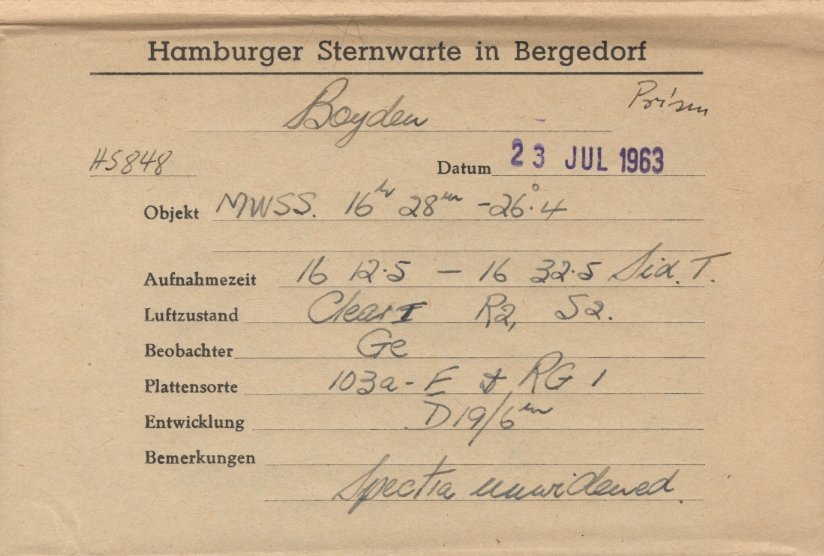 Hamburger Sternwarte in Bergedorf
Prism
Boyden
HS848
Datum 23 JUL 1963
Objekt MWSS. 16ʰ 28ᵐ -26°.4
Aufnahmezeit 16 12.5 – 16 32.5 Sid. T.
Luftzustand Clear I R2, S2.
Beobachter Ge
Plattensorte 103a-E & RG 1
Entwicklung D19/6ᵐ
Bemerkungen
Spectra unwidened.